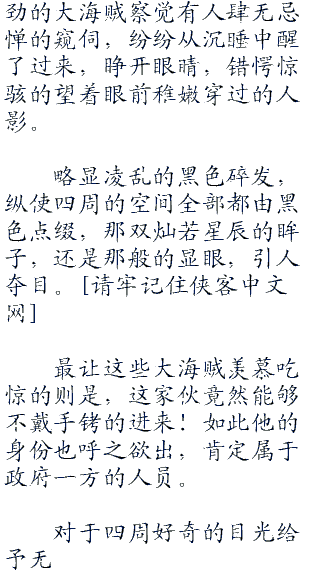 劲的大海贼察觉有人肆无忌
惮的窥伺，纷纷从沉睡中醒
了过来，睁开眼睛，错愕惊
骇的望着眼前稚嫩穿过的人
影。
略显凌乱的黑色碎发，
纵使四周的空间全部都由黑
色点缀，那双灿若星辰的眸
子，还是那般的显眼，引人
夺目。[请牢记住侠客中文
网]
最让这些大海贼羡慕吃
惊的则是，这家伙竟然能够
不戴手铐的进来！如此他的
身份也呼之欲出，肯定属于
政府一方的人员。
对于四周好奇的目光给
予无